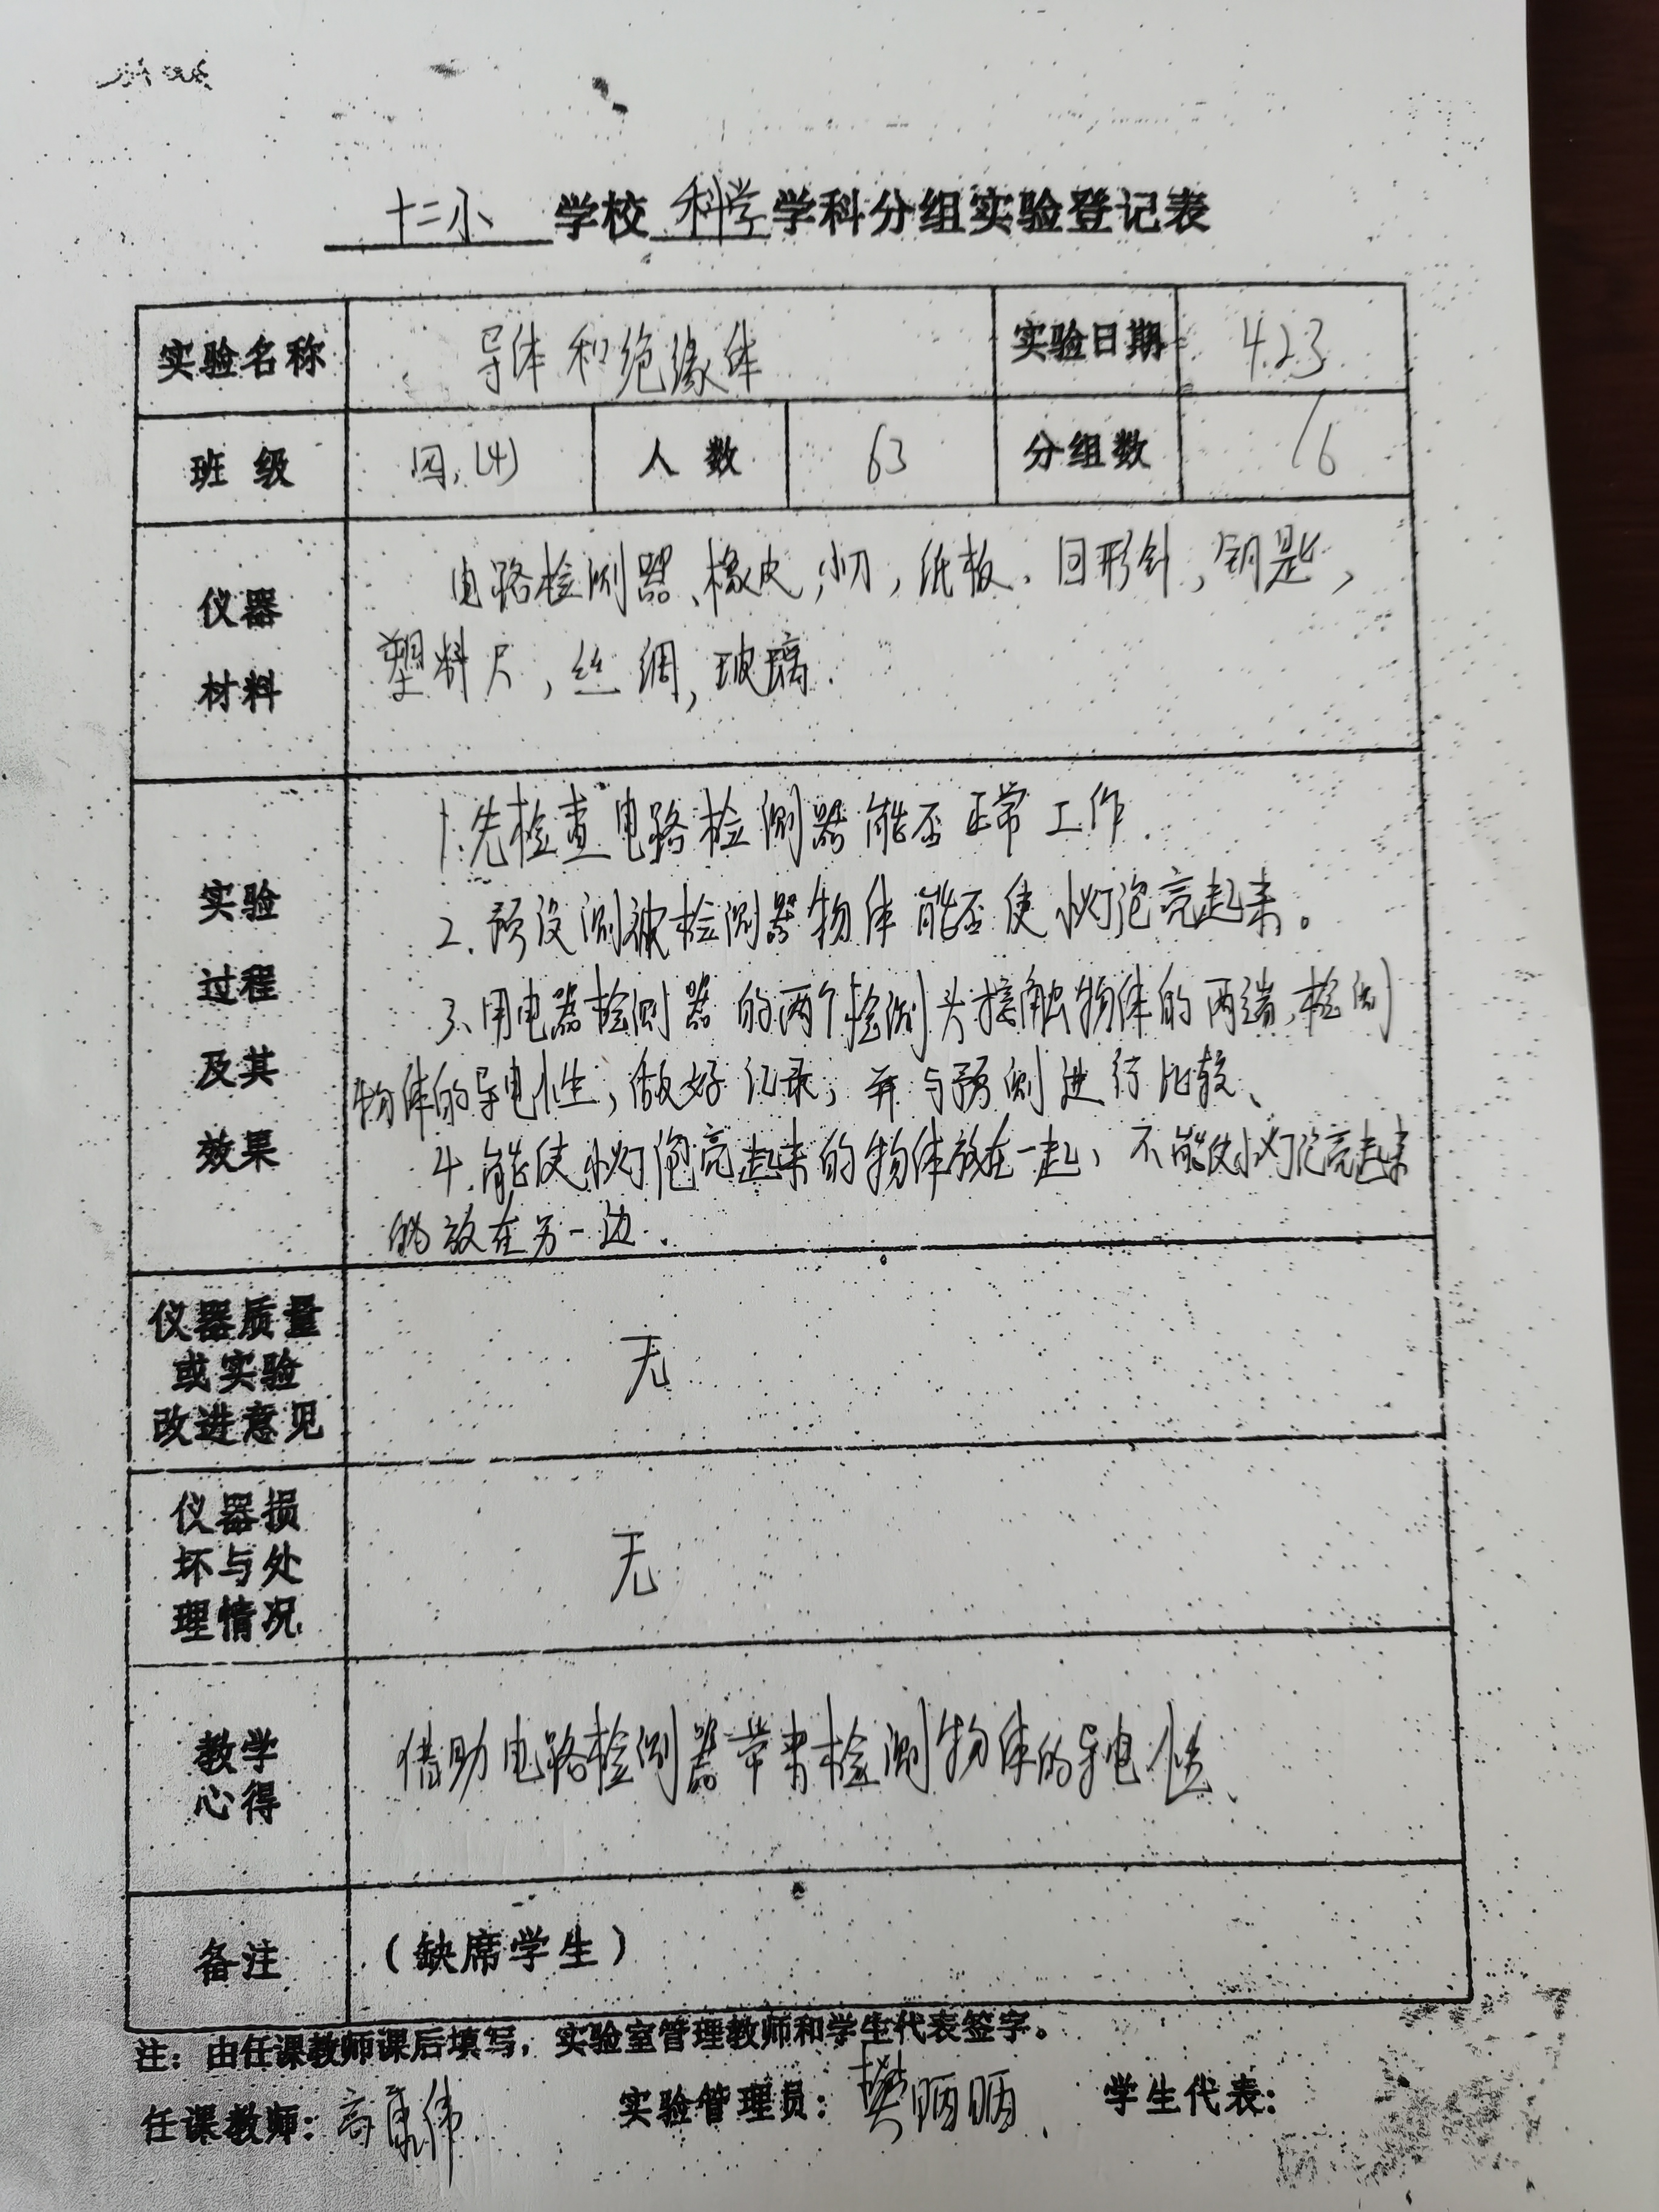 十二小 学校 科学 学科分组实验登记表
实验名称 导体和绝缘体 实验日期 4.23
班级 四.(4) 人数 63 分组数 16
仪器
材料
电路检测器、橡皮,小刀,纸板.回形针,钥匙,
塑料尺,丝绸,玻璃.
实验
过程
及其
效果
1.先检查电路检测器能否正常工作.
2.预设测被检测器物体能否使小灯泡亮起来。
3、用电器检测器的两个检测头接触物体的两端,检测
物体的导电性,做好记录,并与预测进行比较、
4.能使小灯泡亮起来的物体放在一起,不能使小灯泡亮起来
的放在另一边.
仪器质量
或实验
改进意见
无
仪器损
坏与处
理情况
无
教学
心得
借助电路检测器带来检测物体的导电性、
备注 (缺席学生)
注:由任课教师课后填写,实验室管理教师和学生代表签字。
任课教师:高康伟 实验管理员:樊丽丽 学生代表: